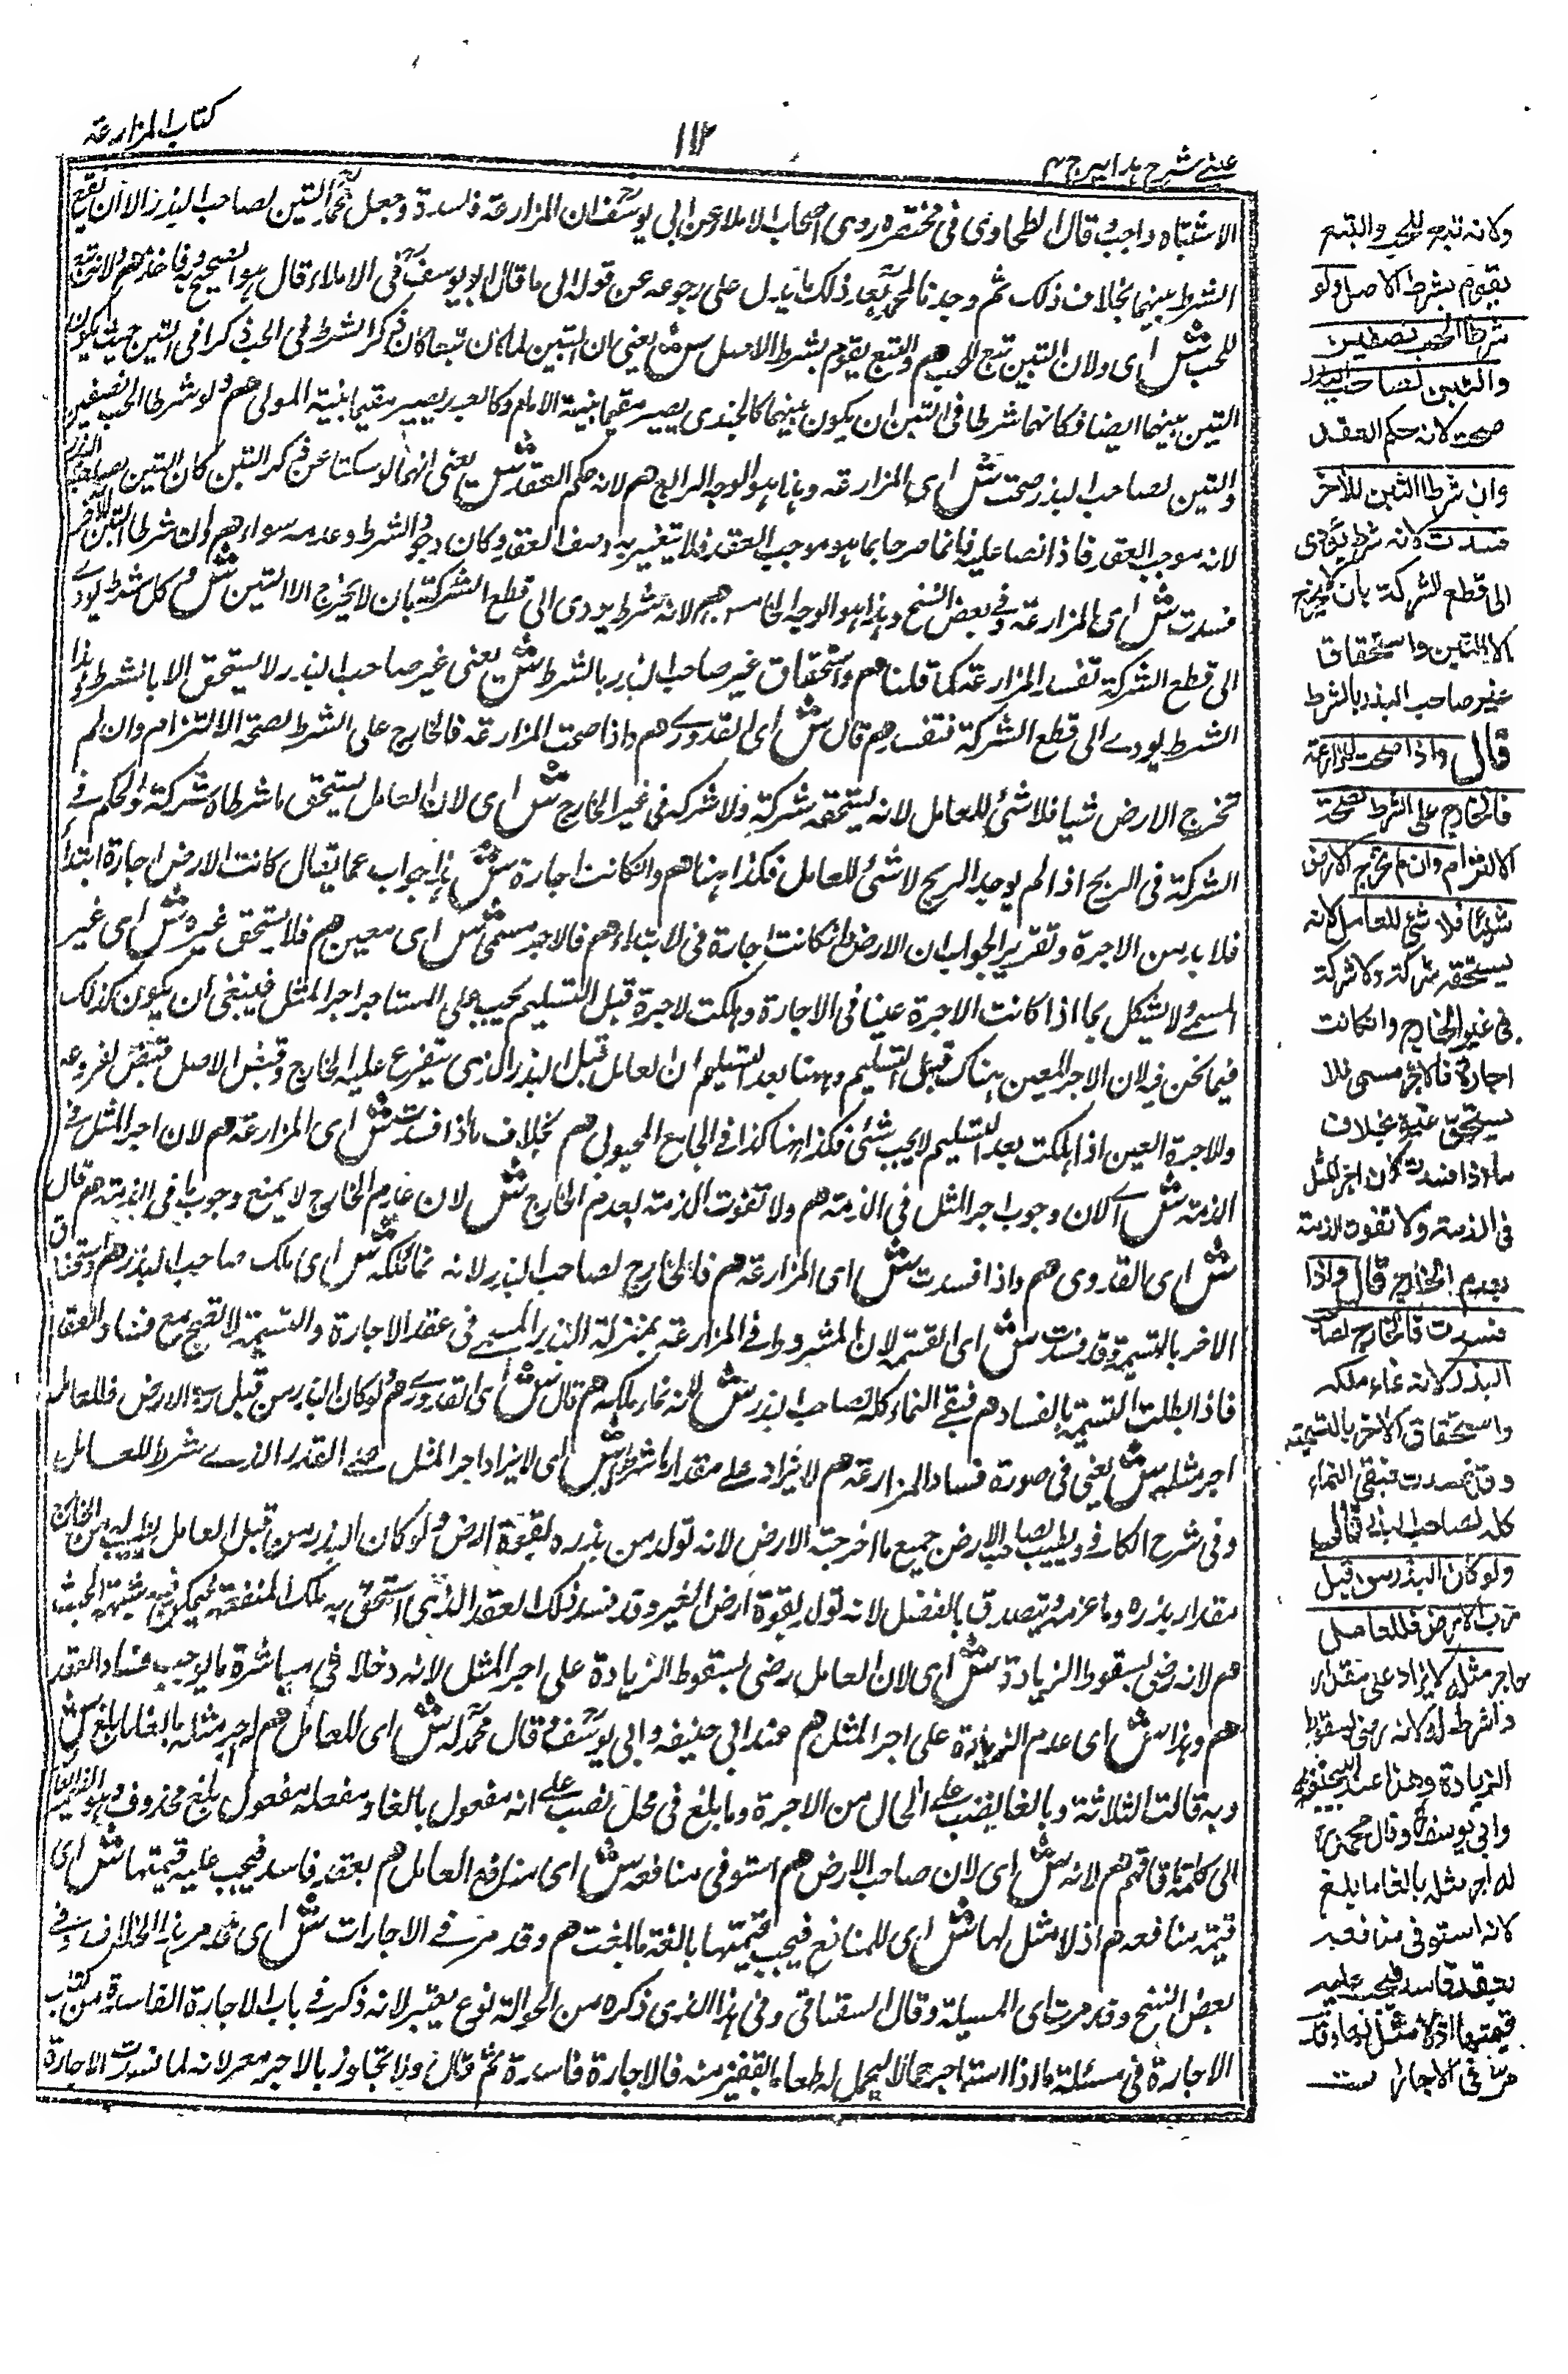 كتاب المزارعة
١١٢
عینی شرح ہدایہ ج ٣
الاشتباه واجب وقال الطحاوى فى مختصره روى اصحاب الاملاء عن ابى يوسف ان المزارعة فاسدة وجعل محمد التبن لصاحب البذر الا ان يقع
الشرط بينهما بخلاف ذلك ثم وجدنا لمحمد بعد ذلك ما يدل على رجوعه عن قوله الى ما قال ابو يوسف فى الاملاء قال هو الصحيح وبه فاخذ هم ولانه تبع
للحب ش اى ولان التبن تبع للحب هم والتبع يقوم بشرط الاصل ش يعنى ان التبن لما كان تبعا كان ذكر الشرط فى الحب ذكرا فى التبن حيث يكون
التبن بينهما ايضا فكانهما شرطا فى التبن ان يكون بينهما كالجندى يصير مقيما بنية الامام وكالعبد يصير مقيما بنية المولى هم ولو شرطا الحب نصفين
والتبن لصاحب البذر صحت ش اى المزارعة وهذا هو الوجه الرابع هم لانه حكم العقد ش يعنى انهما لو سكتا عن ذكر التبن كان التبن لصاحب البذر
لانه موجب العقد فاذا نصا عليه فانما صرحا بما هو موجب العقد فلا يتغير به وصف العقد وكان وجود الشرط وعدمه سواء هم وان شرطا التبن للآخر
فسدت ش اى المزارعة وفى بعض النسخ وهذا هو الوجه الخامس هم لانه شرط يودى الى قطع الشركة بان لا يخرج الا التبن ش وكل شرط يودے
الى قطع الشركة تفسد المزارعة كما قلنا هم واستحقاق غير صاحب البذر بالشرط ش يعنى غير صاحب البذر لا يستحق الا بالشرط وهذا
الشرط يودے الى قطع الشركة فتفسد هم قال ش اى القدورے هم واذا صحت المزارعة فالخارج على الشرط لصحة الالتزام وان لم
تخرج الارض شيا فلا شئ للعامل لانه يستحقه شركة ولا شركة فى غير الخارج ش اى لان العامل يستحق ما شرطاه شركة والحكم فے
الشركة فى الربح اذا لم يوجد الربح لا شئ للعامل فكذا ههنا هم وان كانت اجارة ش هذا جواب عما يقال كانت الارض اجارة ابتداً
فلا بد من الاجرة وتقرير الجواب ان الارض وان كانت اجارة فى الابتداء هم فالاجر مسمى ش اى معين هم فلا يستحق غيره ش اى غير
المسمے ولا يشكل بما اذا كانت الاجرة عينا فى الاجارة وهلكت الاجرة قبل التسليم يجب على المستاجر اجر المثل فينبغى ان يكون كذلك
فيما نحن فيه لان الاجر المعين هناك قبل التسليم وههنا بعد التسليم ان العامل قبل البذر الذى يتفرع عليه الخارج وقبض الاصل قبض لفروعه
والاجرة العين اذا هلكت بعد التسليم لا يجب شئ فكذا ههنا كذا فى الجامع المحبوبى هم بخلاف ما اذا فسدت ش اى المزارعة هم لان اجر المثل فے
الذمة ش اے لان وجوب اجر المثل فى الذمة هم ولا تفوت الذمة بعدم الخارج ش لان عدم الخارج لا يمنع وجوبها فى الذمة هم قال
ش اى القدورى هم واذا فسدت ش اى المزارعة هم فالخارج لصاحب البذر لانه نماء ملكه ش اى ملك صاحب البذر هم واستحقاق
الاخر بالتسمية وقد فسدت ش اى القسمة لان المشروط فے المزارعة بمنزلة البذر المسمے فى عقد الاجارة والتسمية لا تصح مع فساد العقد
فاذا بطلت التسمية بالفساد هم فبقے النماء كله لصاحب البذر ش لانه نماء ملكه هم قال ش اى القدورے هم ولو كان البذر من قبل رب الارض فللعامل
اجر مثله ش يعنى فى صورة فساد المزارعة هم لا يزاد علے مقدار ما شرط له ش اى لا يزاد اجر المثل علے القدر الذے شرط للعامل
وفى شرح الكافى ويطيب لصاحب الارض جميع ما اخرجته الارض لانه تولد من بذره بقوة ارضه ولو كان البذر من قبل العامل يطيب له من الخارج
مقدار بذره وما غرم ويتصدق بالفضل لانه تولد بقوة ارض الغير وقد فسد ذلك العقد الذى استحق به ملك المنفعة فيمكن فيه شبهة الخبث
هم لانه رضى بسقوط الزيادة ش اى لان العامل رضى بسقوط الزيادة على اجر المثل لانه دخل فى مباشرة ما يوجب فساد العقد
هم وهذا ش اى عدم الزيادة على اجر المثل هم عند ابى حنيفه وابى يوسف وقال محمد له ش اى للعامل هم اجر مثله بالغا ما بلغ ش
وبه قالت الثلاثة وبالغا نصب علے الحال من الاجرة وما بلغ فى محل نصب علے انه مفعول بالغا ومفعله مفعول بلغ محذوف
الى كلمة ما فافهم هم لانه ش اى لان صاحب الارض هم استوفى منافعه ش اى منافع العامل هم بعقد فاسد فيجب عليه قيمتها ش اى
قيمة منافعه هم اذ لا مثل لها ش اى للمنافع فيجب قيمتها بالغة ما بلغت هم وقد مر فے الاجارات ش اى قد مر هذا الخلاف وفے
بعض النسخ وقد مرت اى المسئلة وقال السغناقى وفى هذا الذى ذكره من الحوالة نوع تغيير لانه ذكر فے باب الاجارة الفاسدة من كتاب
الاجارة فى مسئلة ما اذا استاجر حمالا ليحمل له طعاما بقفيز منه فالاجارة فاسدة ثم قال ولا تجاوز بالاجر معه لانه لما فسدت الاجارة
ولانه تبع للحب والتبع
يقوم بشرط الاصل ولو
شرطا الحب نصفين
والتبن لصاحب البذر
صحت لانه حكم العقد
وان شرطا التبن للآخر
فسدت لانه شرط يؤدى
الى قطع الشركة بان لا يخرج
الا التبن واستحقاق
غير صاحب البذر بالشرط
قال واذا صحت المزارعة
فالخارج على الشرط لصحة
الالتزام وان لم تخرج الارض
شيئا فلا شئ للعامل لانه
يستحقه شركة ولا شركة
فى غير الخارج وان كانت
اجارة فالاجر مسمى فلا
يستحق غيره بخلاف
ما اذا فسدت لان اجر المثل
فى الذمة ولا تفوت الذمة
بعدم الخارج قال واذا
فسدت فالخارج لصاحب
البذر لانه نماء ملكه
واستحقاق الآخر بالتسمية
وقد فسدت فبقى النماء
كله لصاحب البذر قال
ولو كان البذر من قبل
رب الارض فللعامل
اجر مثله لا يزاد على مقدار
ما شرط له لانه رضى بسقوط
الزيادة وهذا عند ابى حنيفة
وابى يوسف وقال محمد
له اجر مثله بالغا ما بلغ
لانه استوفى منافعه
بعقد فاسد فيجب عليه
قيمتها اذ لا مثل لها وقد
مر فى الاجارات